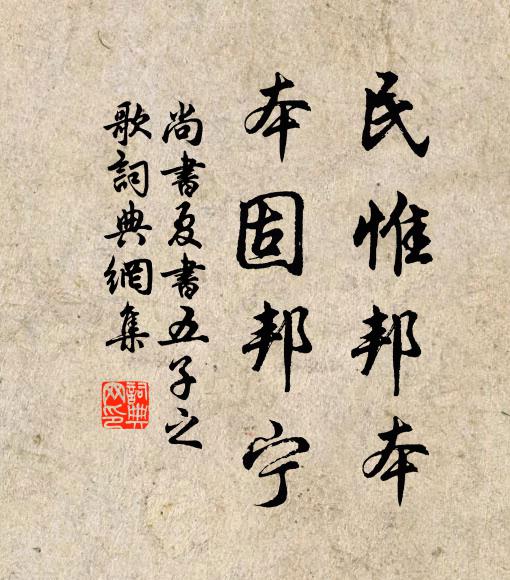 民惟邦本
本固邦宁
尚書夏書五子之
歌詞典網集
詞典
网印